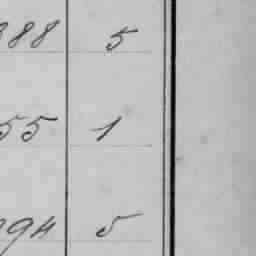 388 5
55 1
94 5